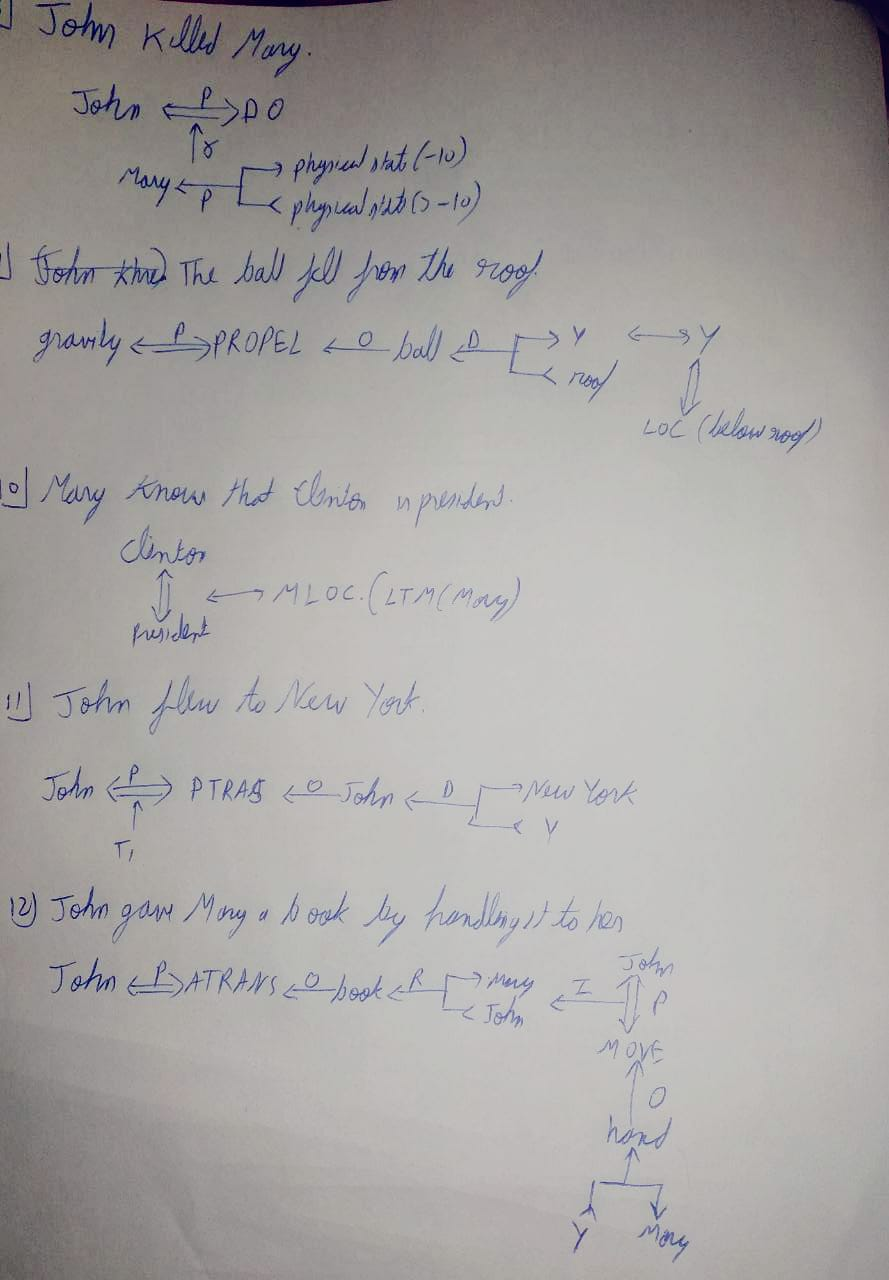 John Killed Mary.
John P DO
r
Mary P physical state (-10)
physical state (> -10)
The ball fell from the roof.
gravity P PROPEL O ball D Y Y
roof
LOC (below roof)
10] Mary Knows that Clinton is president.
Clinton
MLOC. (LTM (Mary)
President
11] John flew to New York.
John P PTRAS O John D New York
Y
T1
12) John gave Mary a book by handling it to her
John P ATRANS O book R Mary I John
John P
MOVE
O
hand
Y Mary